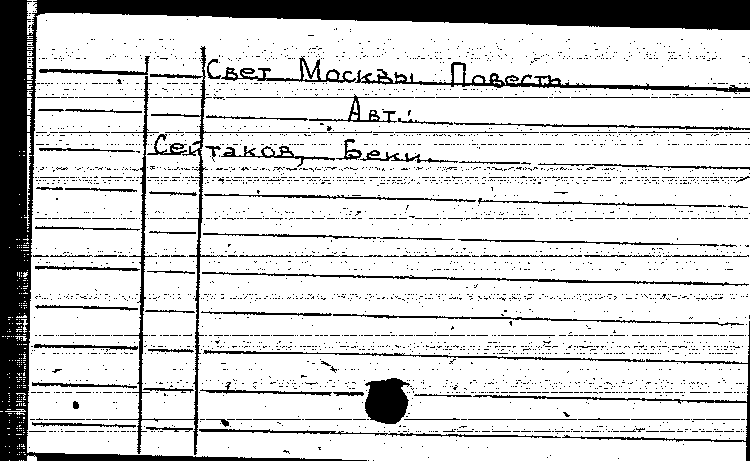 Свет Москвы. Повесть.
Авт.:
Сейтаков, Беки.